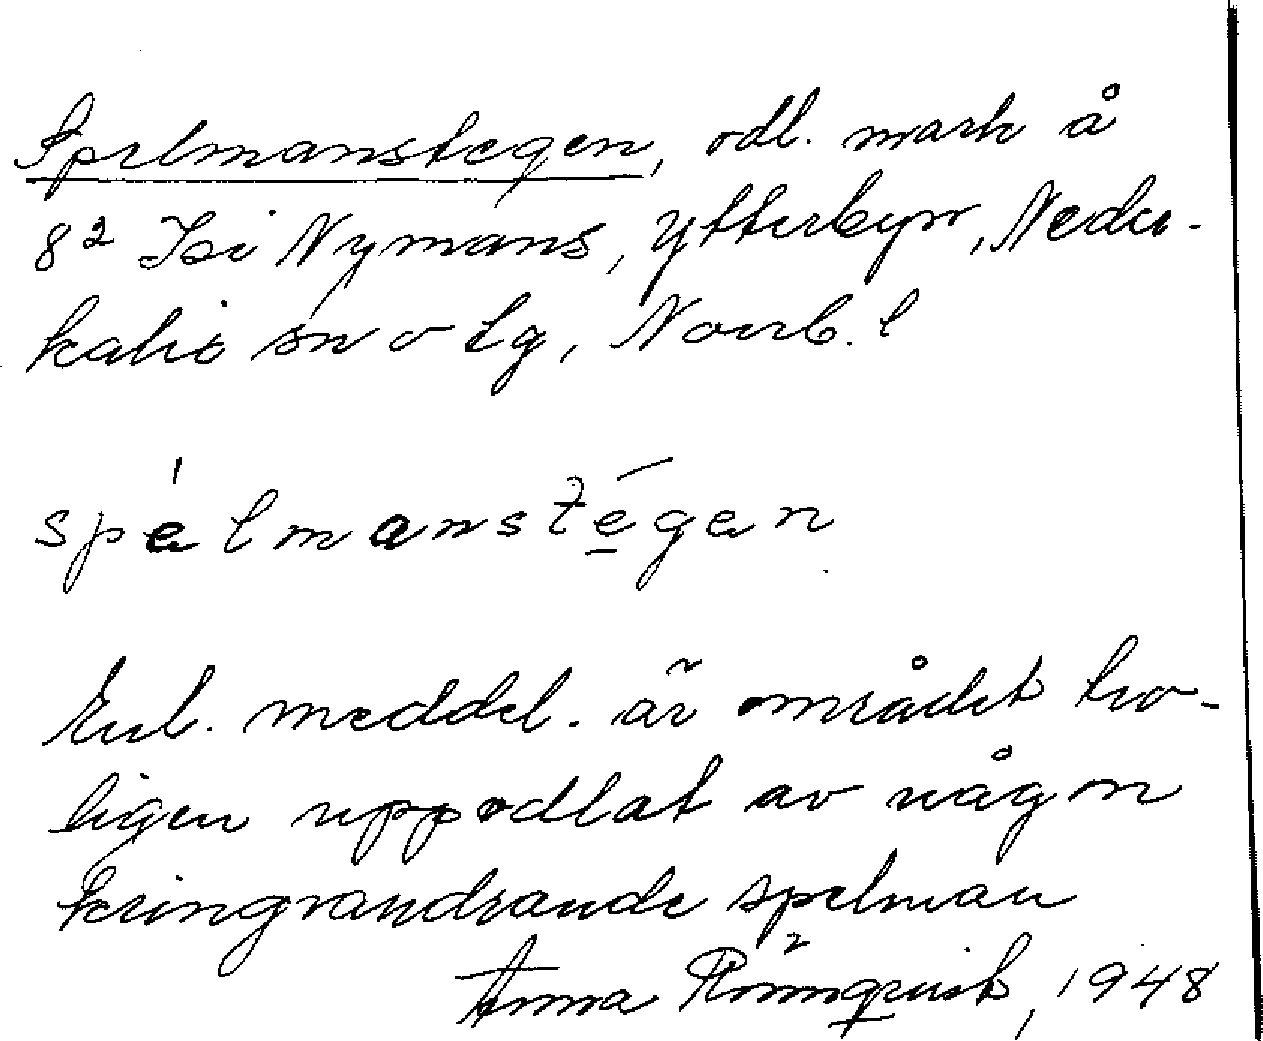 Spelmanstegen, odl. mark å
8² Isi Nymans, Ytterbyn, Neder-
kalix sn o tg, Norrb. l
spélmanstḗgen
Enl. meddel. är området tro-
ligen uppodlat av någon
kringvandrande spelman
Anna Rönnqvist, 1948